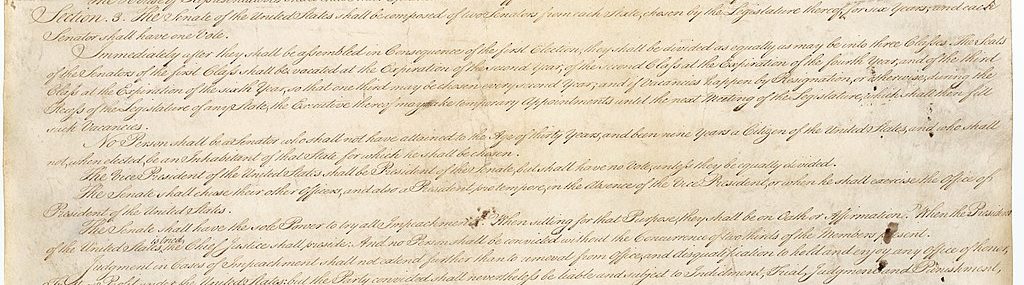 Section. 3. The Senate of the United States shall be composed of two Senators from each State, chosen by the Legislature thereof, for six Years; and each
Senator shall have one Vote.
Immediately after they shall be assembled in Consequence of the first Election, they shall be divided as equally as may be into three Classes. The Seats
of the Senators of the first Class shall be vacated at the Expiration of the second Year, of the second Class at the Expiration of the fourth Year, and of the third
Class at the Expiration of the sixth Year, so that one third may be chosen every second Year; and if Vacancies happen by Resignation, or otherwise, during the
Recess of the Legislature of any State, the Executive thereof may make temporary Appointments until the next Meeting of the Legislature, which shall then fill
such Vacancies.
No Person shall be a Senator who shall not have attained to the Age of thirty Years, and been nine Years a Citizen of the United States, and who shall
not, when elected, be an Inhabitant of that State for which he shall be chosen.
The Vice President of the United States shall be President of the Senate, but shall have no Vote, unless they be equally divided.
The Senate shall chuse their other Officers, and also a President pro tempore, in the Absence of the Vice President, or when he shall exercise the Office of
President of the United States.
The Senate shall have the sole Power to try all Impeachments. When sitting for that Purpose, they shall be on Oath or Affirmation. When the President
of the United States is tried, the Chief Justice shall preside: And no Person shall be convicted without the Concurrence of two thirds of the Members present.
Judgment in Cases of Impeachment shall not extend further than to removal from Office, and disqualification to hold and enjoy any Office of honor,
Trust or Profit under the United States: but the Party convicted shall nevertheless be liable and subject to Indictment, Trial, Judgment and Punishment,